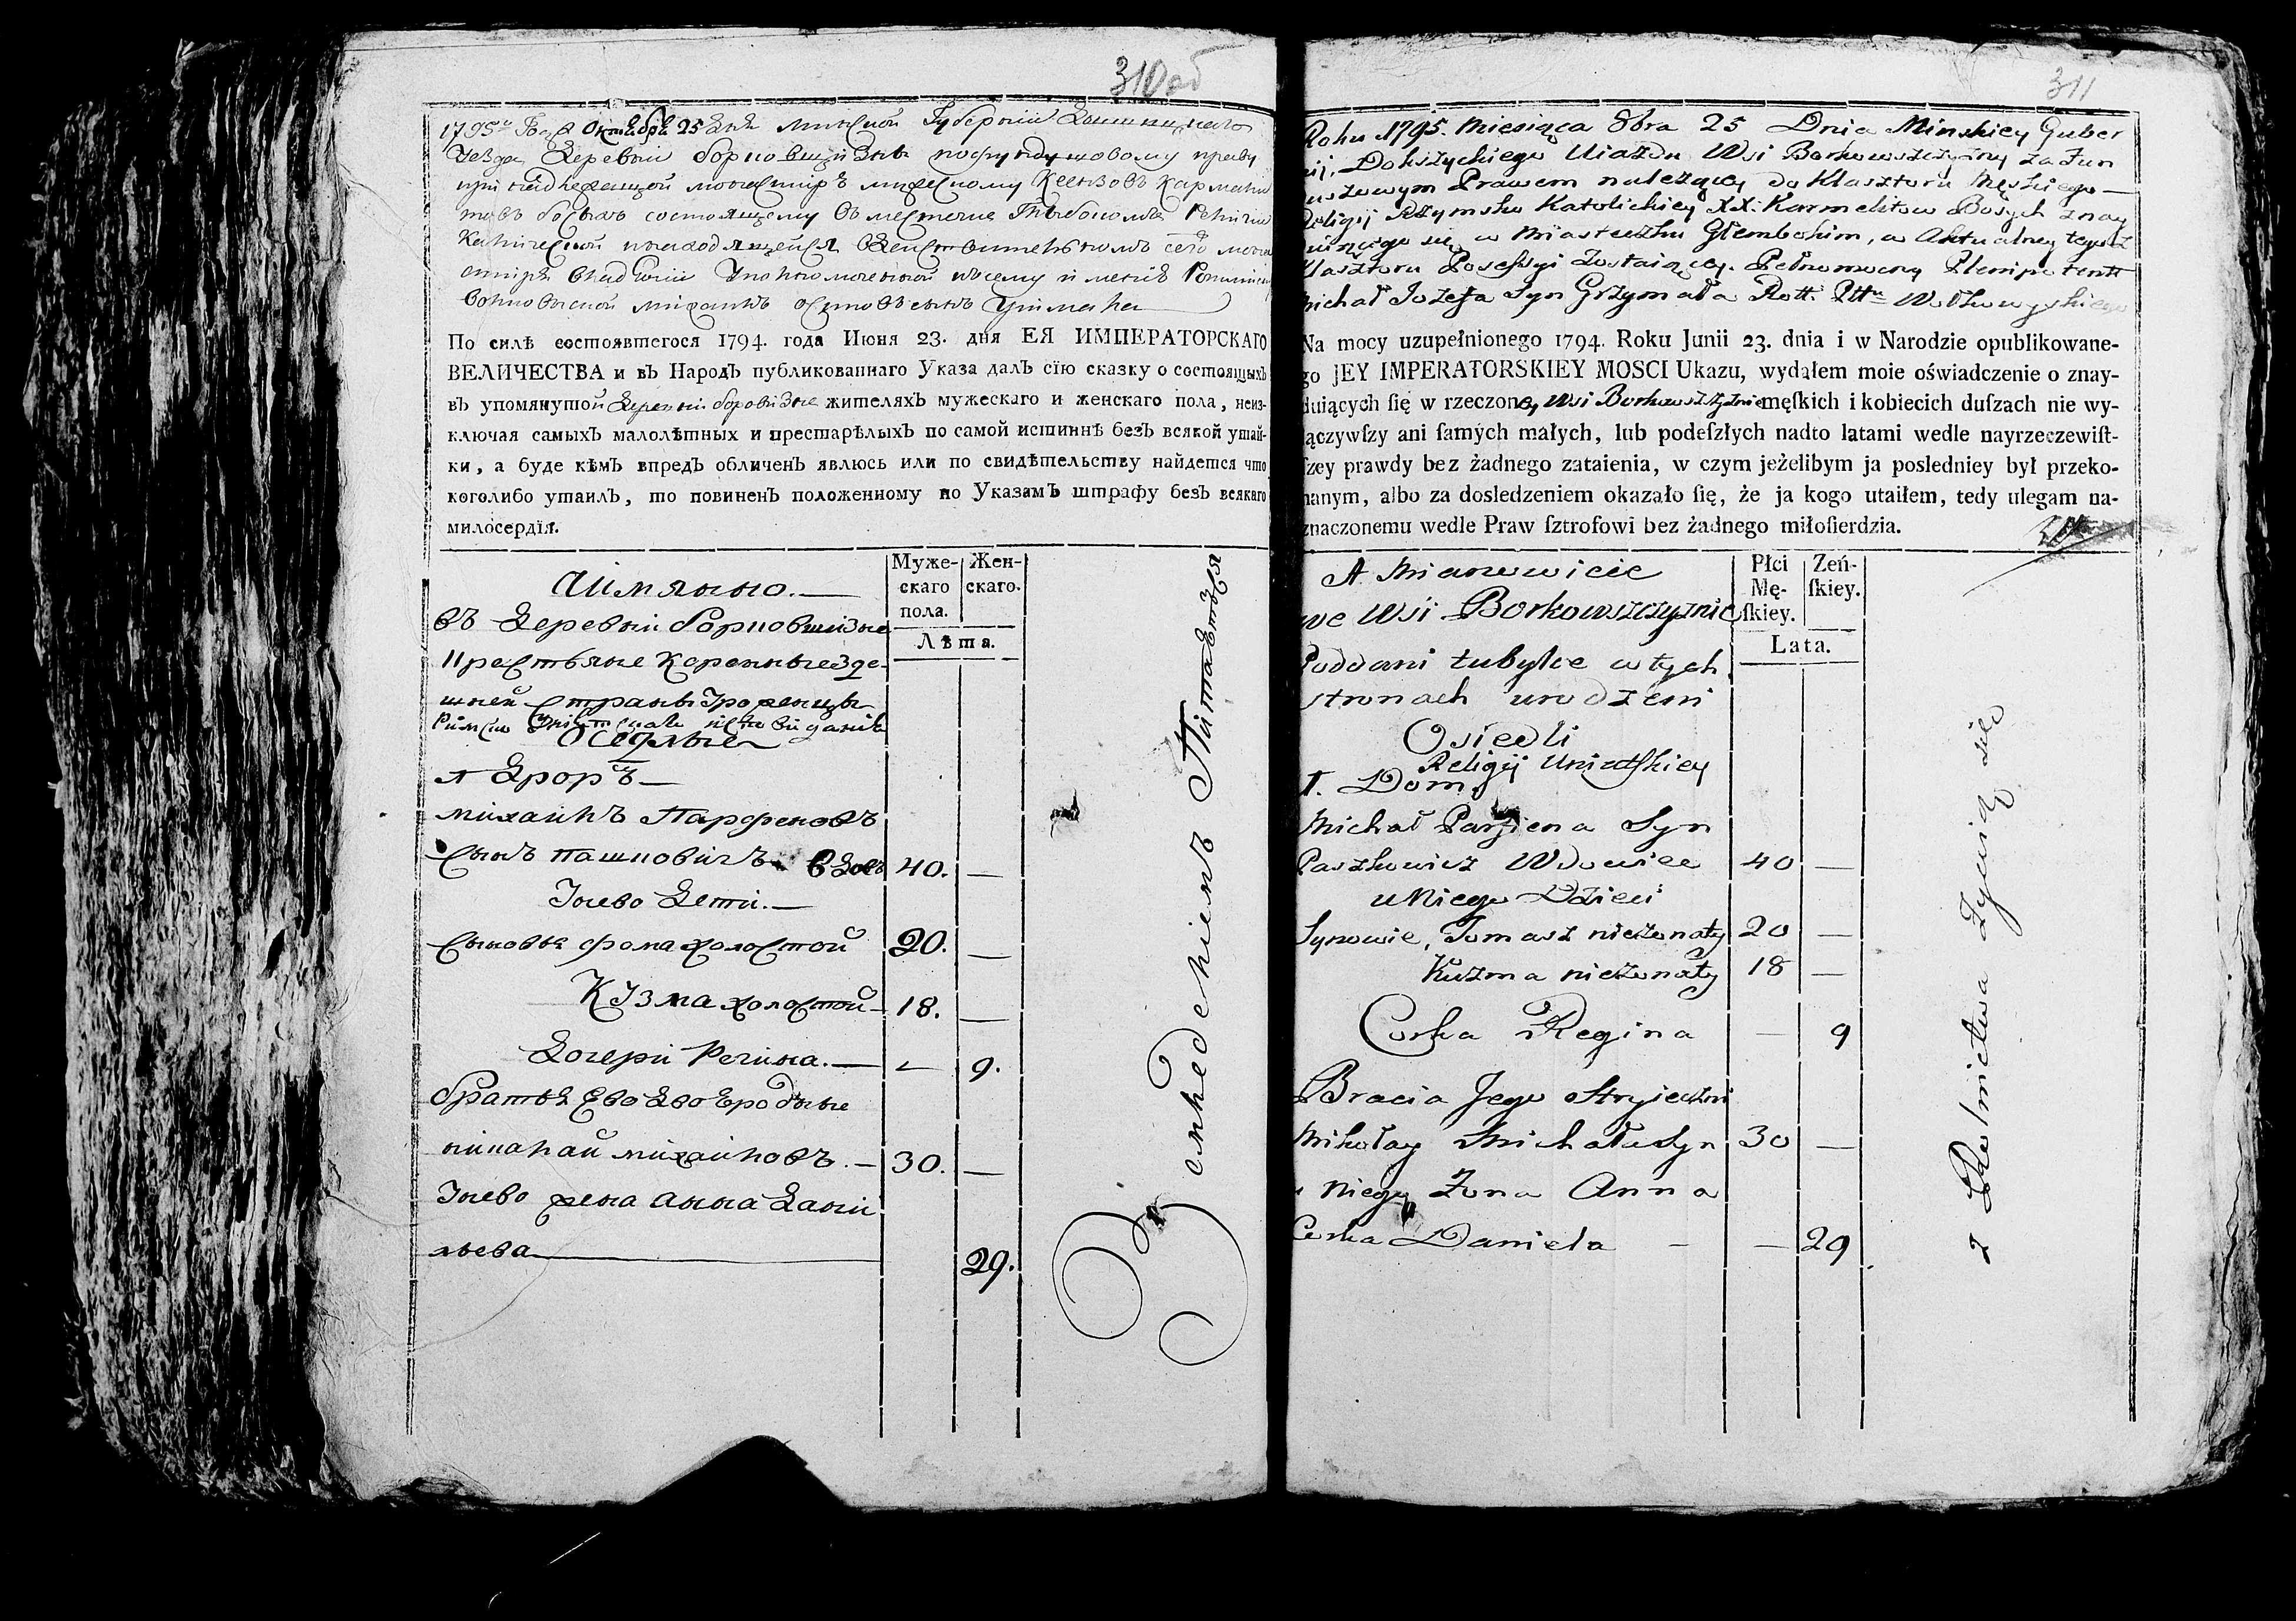 310 об
1795го Года Октября 25 дня Минской Губернии Докшицкаго
уезда деревни Борковщизны по фундушовому праву
принадлежащой монастирѣ мужескому Ксенѕовъ Кармели
товъ босыхъ состоящему въ местечке Глыбокомъ Религии
Католической находящейся въ действительномъ сего мона
стиря владении Уполномоченной къ сему имению Ротмистръ
Волковиской Михаилъ Осиповъ сынъ Гримала
По силѣ состоявшегося 1794. года Июня 23. дня ЕЯ ИМПЕРАТОРСКАГО
ВЕЛИЧЕСТВА и въ Народъ публикованнаго Указа далъ сїю сказку о состоящыхъ
въ упомянутой деревни Боровизне жителяхъ мужескаго и женскаго пола, неиз-
ключая самыхъ малолѣтныхъ и престарѣлыхъ по самой истиннѣ безъ всякой утай-
ки, а буде кѣмъ впредъ обличенъ явлюсь или по свидѣтельству найдется что
коголибо утаилъ, то повиненъ положенному по Указамъ штрафу безъ всякаго
милосердїя.
Муже-скаго пола. Жен-скаго.
Лѣта.
Аимянно.
въ деревни Борковшизне
Престьяне Коренные зде-
шней страны Урожденцы
Римско Униатскаго
Оседлые
1 дворъ
Михаилъ Парфеновъ
сынъ Пашковичъ вдовъ 40. —
Унево дети.
сыновья Фома холостой 20. —
Кузма холостой 18. —
дочери Регина. — 9.
братья Ево двоеродные
николай михайловъ. 30. —
Унево жена анна Дани
льева 29.
Земледелиемъ Питается
311
Roku 1795. Miesiąca 8bra 25 Dnia Minskiey Guber
nij, Dokszyckiego Uiazdu Wsi Borkowszczyzny za Fun
duszowym Prawem należącey do Klasztoru Męskiego
Religij Rzymsko Katolickiey XX: Karmelitow Bosych znay
duiącego się w Miasteczku Głembokim, w Aktualney tegoż
Klasztoru Posessyi zostaiącey. Pełnomocny Plenipotent
Michał Jozefa Syn Grzymała Rott. Ptt Wołkowyskiego
Na mocy uzupełnionego 1794. Roku Junii 23. dnia i w Narodzie opublikowane-
go JEY IMPERATORSKIEY MOSCI Ukazu, wydałem moie oświadczenie o znay-
duiących ſię w rzeczoney Wsi Borkowszczyznie męſkich i kobiecich duſzach nie wy-
łączywſzy ani ſamych małych, lub podeſzłych nadto latami wedle nayrzeczewiſt-
ſzey prawdy bez żadnego zataienia, w czym jeżelibym ja posledniey był przeko-
nanym, albo za dosledzeniem okazało ſię, że ja kogo utaiłem, tedy ulegam na-
znaczonemu wedle Praw ſztrofowi bez żadnego miłoſierdzia.
Płci Mę-ſkiey. Żeń-ſkiey.
Lata.
A Mianowicie
we Wsi Borkowszczyznie
Poddani tubylce w tych
stronach urodzeni
Osiedli
Religij Uniatskiey
1. Dom
Michał Parfiena Syn
Paszkowicz Wdowiec 40 —
u Niego Dzieci
Synowie, Tomasz nieżonaty 20 —
Kuzma nieżonaty 18 —
Corka Regina — 9
Bracia Jego Stryieczni
Mikołay Michała Syn 30 —
u Niego Żona Anna
Corka Daniela — 29
z Rolnictwa Żywią się